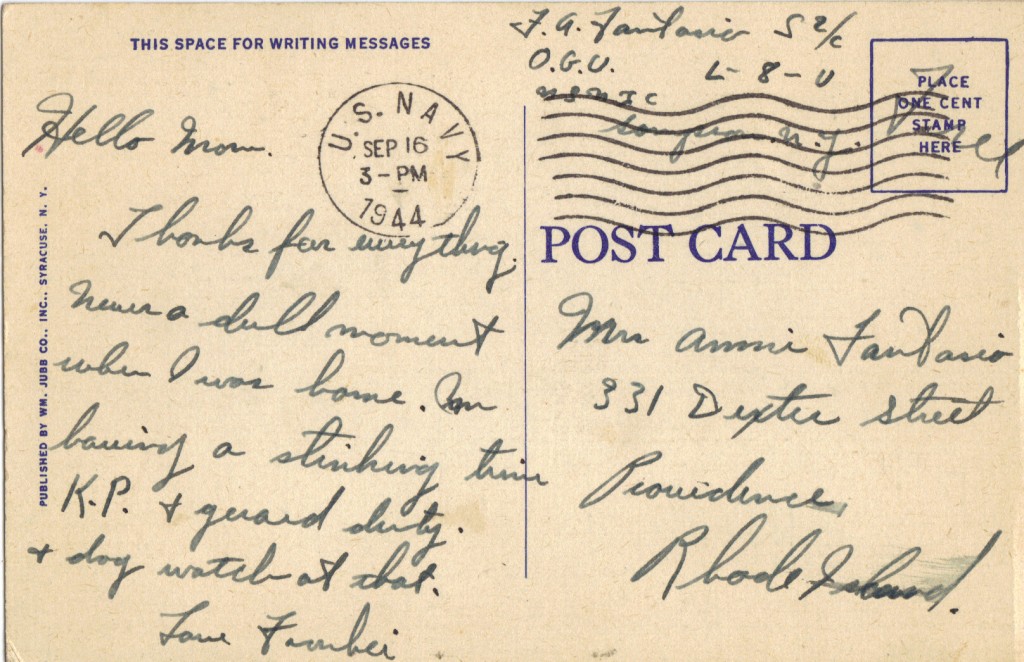 THIS SPACE FOR WRITING MESSAGES
Hello Mom.
Thanks for everything.
Never a dull moment
when I was home. Im
having a stinking time
K.P. + guard duty.
+ dog watch at that.
Love
PUBLISHED BY WM. JUBB CO., INC., SYRACUSE, N. Y.
U.S. NAVY
SEP 16
3-PM
1944
F. A. Fantasio S 2/c
O.G.U. L-8-U
N.Y.
Free
PLACE
ONE CENT
STAMP
HERE
POST CARD
Mrs Annie Fantasio
331 Dexter Street
Providence,
Rhode Island.